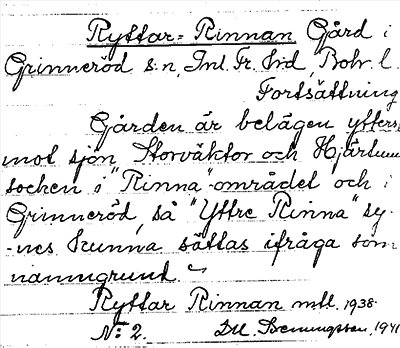 Ryttar-Rinnan Gård i
Grinneröd s:n, Inl. Fr. Hrd, Boh. l.
Fortsättning
Gården är belägen ytterst
mot sjön Storväktor och Hjärtum
socken i "Rinna"-området och i
Grinneröd, så "Yttre Rinna" sy-
-nes kunna sättas ifråga som
namngrund.
Ryttar Rinnan mtl. 1938
N:o 2. 1941